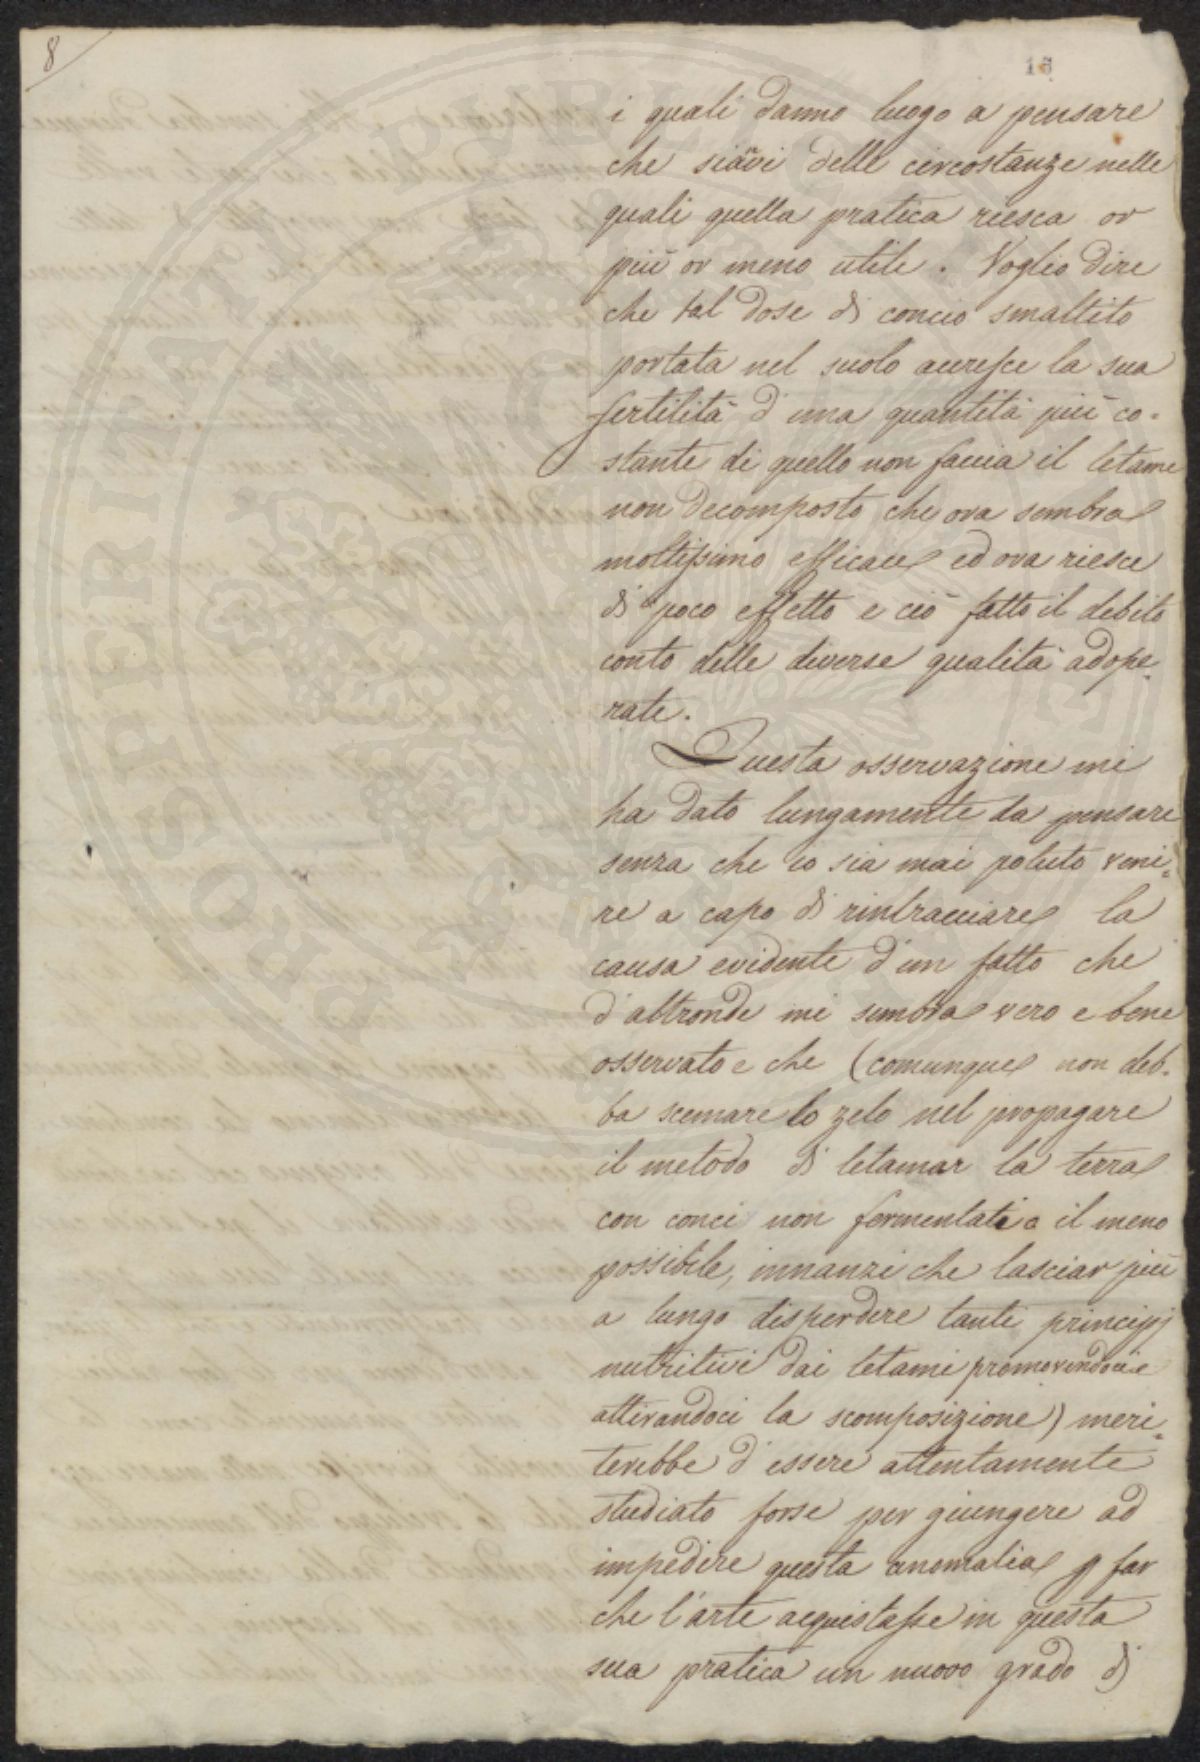 8
16
i quali danno luogo a pensare
che siavi delle circostanze nelle
quali quella pratica riesca or
più or meno utile. Voglio dire
che tal dose di concio smaltito
portata nel suolo accresce la sua
fertilità d'una quantità più co=
stante di quello non faccia il letame
non decomposto che ora sembra
moltissimo efficace ed ora riesce
di poco effetto e ciò fatto il debito
conto delle diverse qualità adope=
rate.
Questa osservazione mi
ha dato lungamente da pensare
senza che io sia mai potuto veni=
re a capo di rintracciare la
causa evidente d'un fatto che
d'altronde mi sembra vero e bene
osservato e che (comunque non deb=
ba scemare lo zelo nel propagare
il metodo di letamar la terra
con conci non fermentati o il meno
possibile, innanzi che lasciar più
a lungo disperdere tanti principj
nutritivi dai letami promovendoci e
attivandoci la scomposizione) meri=
terebbe d'essere attentamente
studiato forse per giungere ad
impedire questa anomalia e far
che l'arte acquistasse in questa
sua pratica un nuovo grado di
PROSPERITATI PUBLICAE